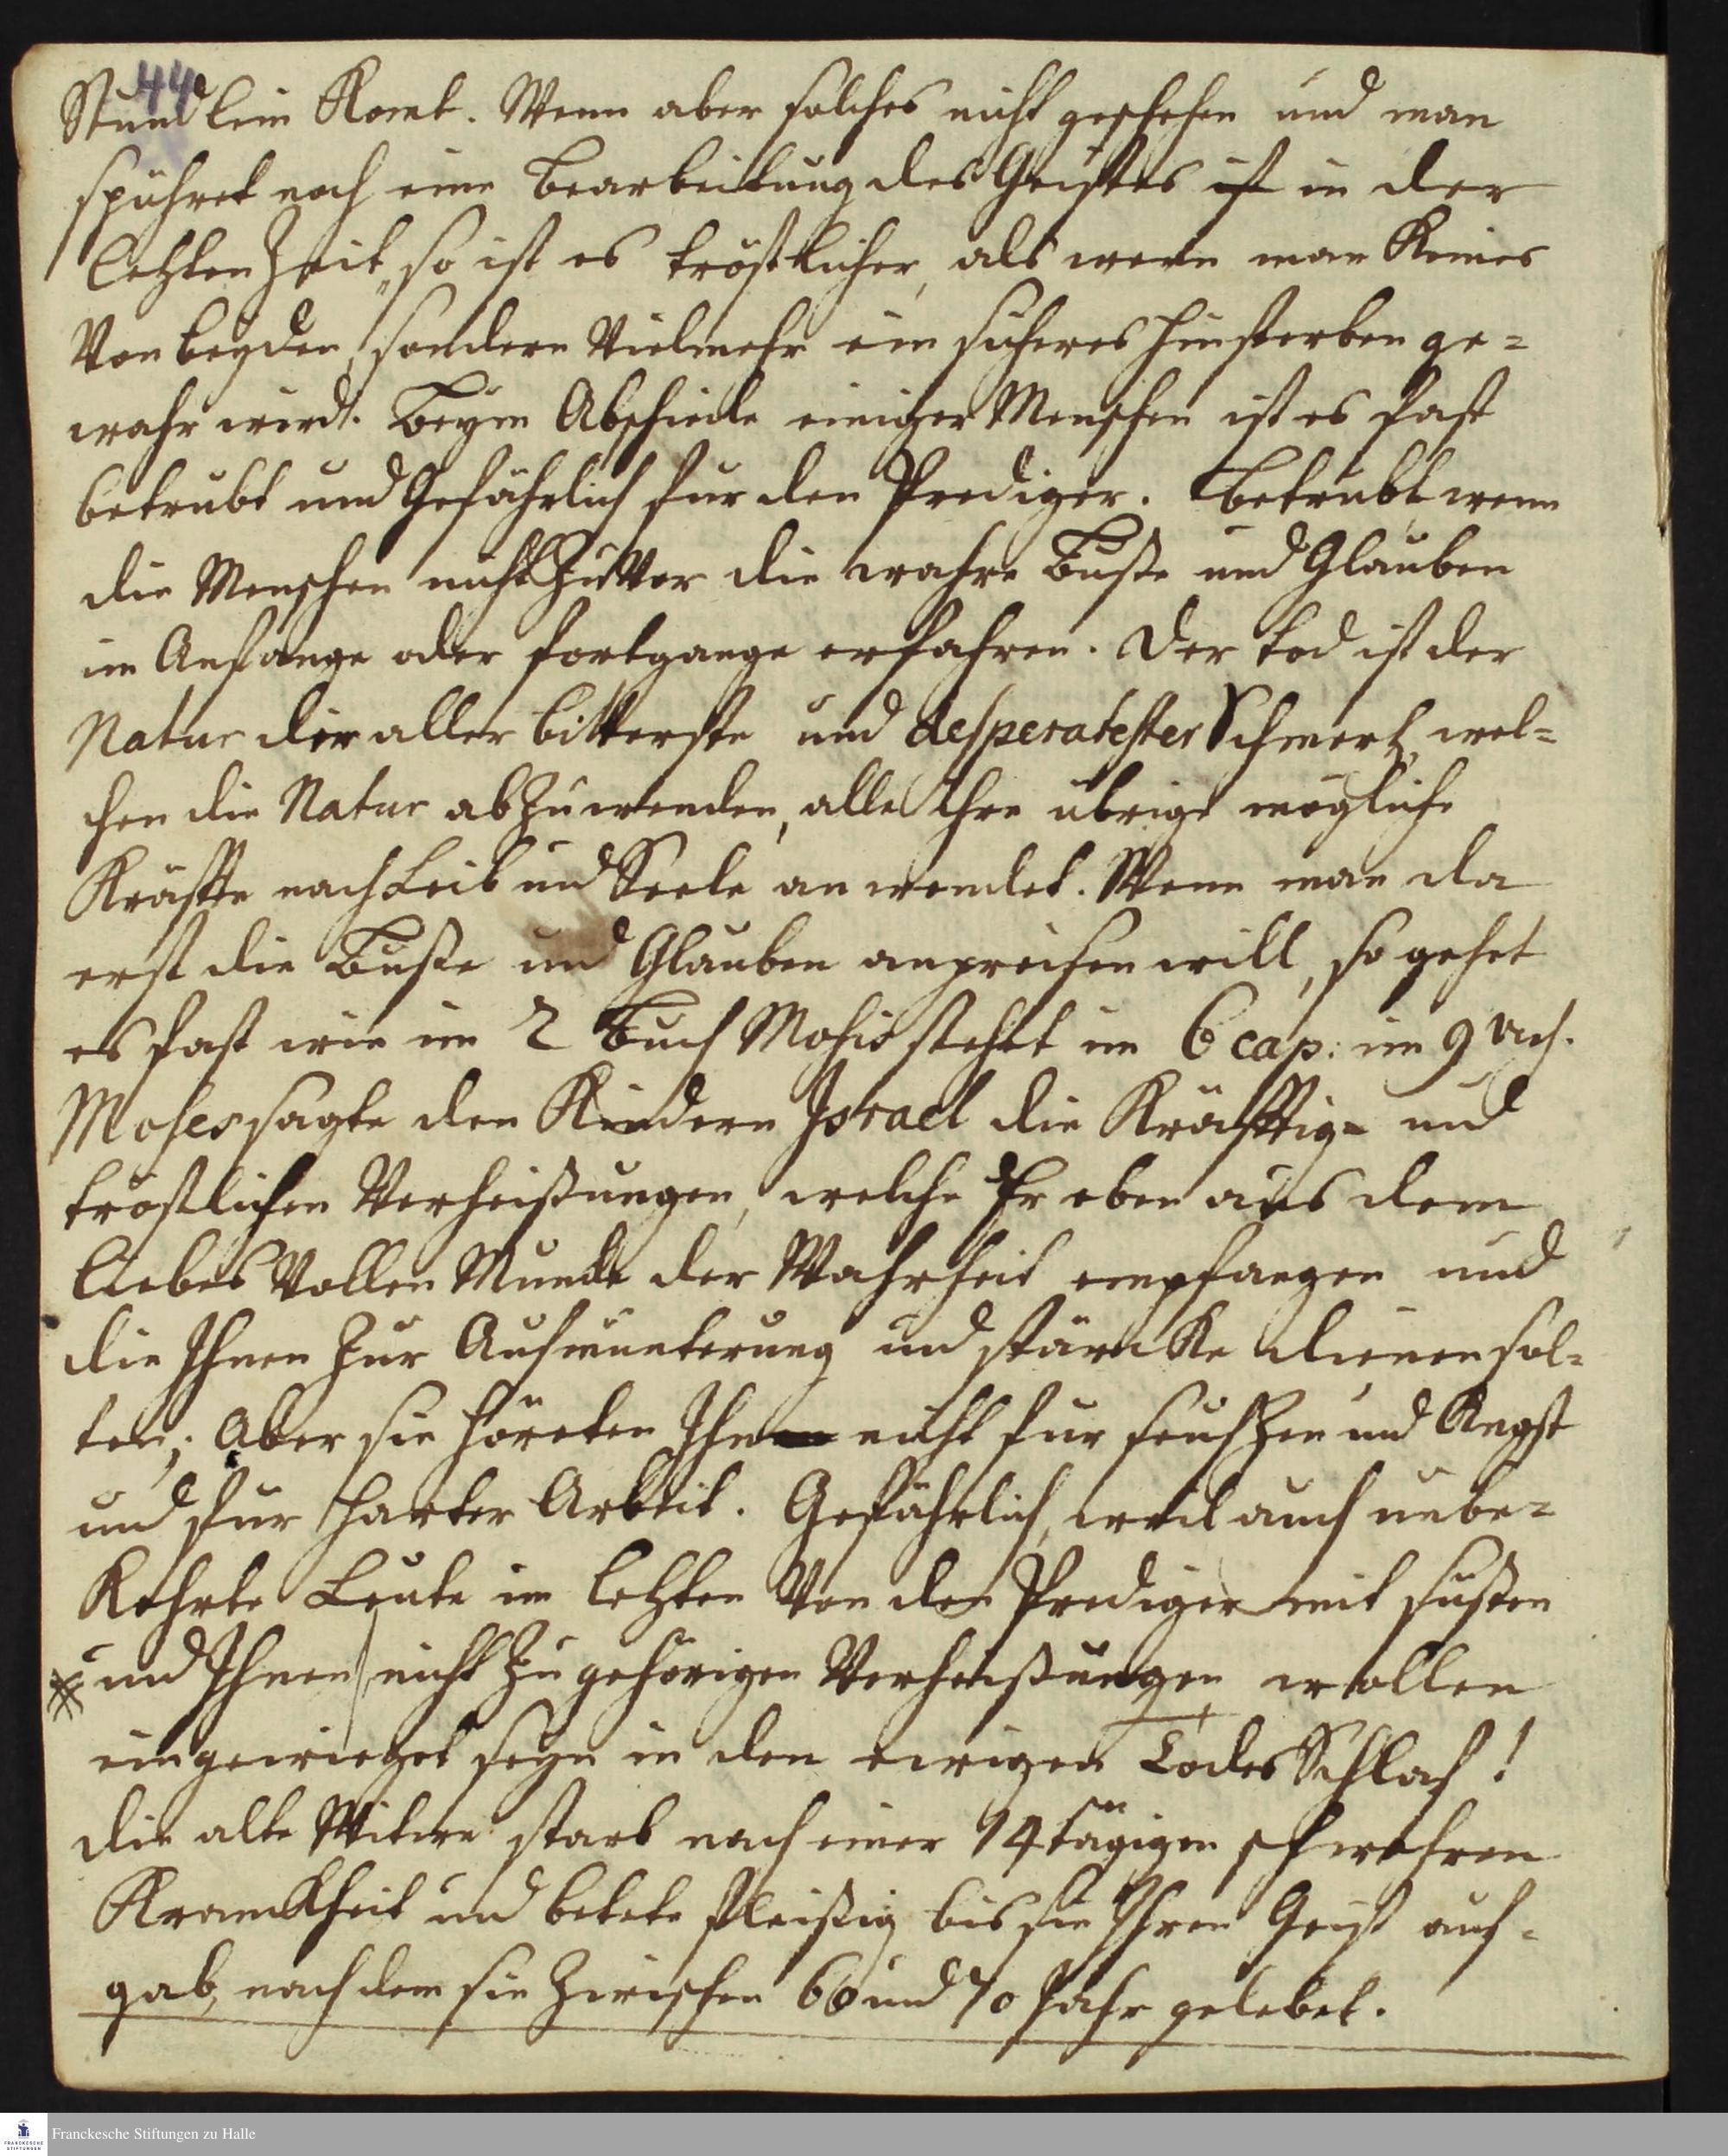 44
Stundlein Komt. Wenn aber solches nicht geschehen und man
spühret noch eine Bearbeitung des Geistes ist in der
letzten Zeit, so ist es tröstlicher, als wenn man Keines
Von beyden, sondern Vielmehr ein sicheres hinsterben ge=
wahr wird. Beym Abschiede einiger Menschen ist es fast
betrübt und Gefährlich für den Prediger. Betrübt, wenn
die Menschen nicht Zu Vor die wahre Buße und Glauben
im Anfange oder fortgange erfahren. Der tod ist der
Natur der aller bitterste und desperatester Schmertz, wel=
chen die Natur abZuwenden, alle Ihre übrige mögliche
Kräffte nach Leib und Seele an wendet. Wenn man da
erst die Buße und Glauben anpreisen will, so gehet
es fast wie im 2 Buch Mosis stehet im 6 cap: im 9 Vers.
Moses sagte den Kindern Israel die Kräfftig= und
tröstlichen Verheißungen, welche Er eben aus dem
liebes Vollen Munde der Wahrheit empfangen und
die Ihnen Zur Aufmunterung und stärcke dienen sol=
ten; Aber sie höreten Ihn nicht für seufzen und Angst
und für harter Arbeit. Gefährlich, weil auch unbe=
Kehrte Leute im letzten Von den Prediger mit süßen
und Ihnen nicht Zu gehörigen Verheißungen wollen
eingewieget seyn in den ewigen Todes Schlaf!
die alte Witwe starb nach einer 14 tägigen schwehren
Kranckheit und betete fleißig bis sie Ihren Geist auf=
gab, nach dem sie Zwischen 60 und 70 Jahr gelebet.
Franckesche Stiftungen zu Halle